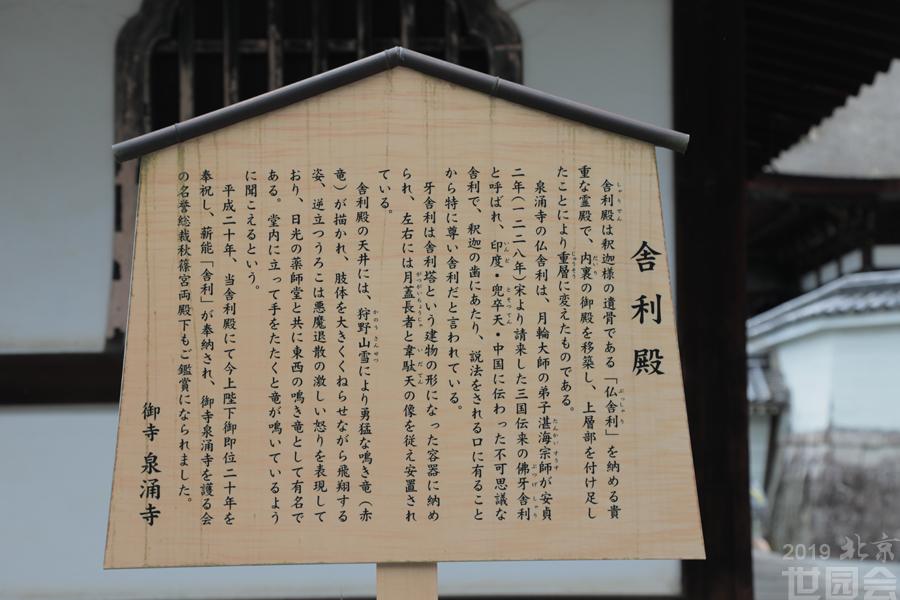 舎利殿
舎利殿は釈迦様の遺骨である「仏舎利」を納める貴
重な霊殿で、内裏の御殿を移築し、上層部を付け足し
たことにより重層に変えたものである。
泉涌寺の仏舎利は、月輪大師の弟子湛海宗師が安貞
二年(一二二八年)宋より請来した三国伝来の佛牙舎利
と呼ばれ、印度・兜卒天・中国に伝わった不可思議な
舎利で、釈迦の歯にあたり、説法をされる口に有ること
から特に尊い舎利だと言われている。
牙舎利は舎利塔という建物の形になった容器に納め
られ、左右には月蓋長者と韋駄天の像を従え安置され
ている。
舎利殿の天井には、狩野山雪により勇猛な鳴き竜(赤
竜)が描かれ、肢体を大きくくねらせながら飛翔する
姿、逆立つうろこは悪魔退散の激しい怒りを表現して
おり、日光の薬師堂と共に東西の鳴き竜として有名で
ある。堂内に立って手をたたくと竜が鳴いているよう
に聞こえるという。
平成二十年、当舎利殿にて今上陛下御即位二十年を
奉祝し、薪能「舎利」が奉納され、御寺泉涌寺を護る会
の名誉総裁秋篠宮両殿下もご鑑賞になられました。
御寺 泉涌寺
2019 北京
世园会